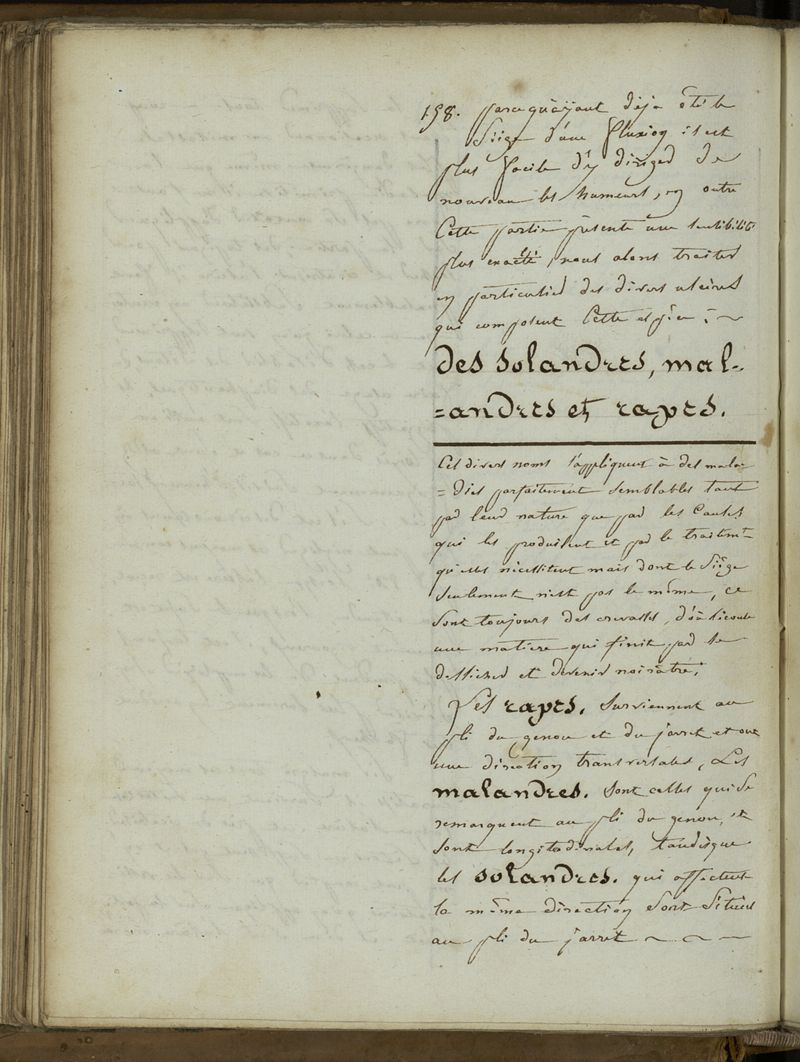 198. parcequ'ayant déja été le
Siége d'une fluxion il est
plus facile d'y diriger de
nouveau les humeurs, en outre
Cette partie présente une sensibilité
plus exaltée, nous alons traiter
en particulier des divers ulcères
qui composent Cette espèce :~
des solandres, mal-
=andres et rapes.
Ces divers noms s'appliquent à des mala-
=dies parfaitement semblables tant
par leur nature que par les Causes
qui les produisent et par le traitemt
qu'elles nécessitent mais dont le Siége
Seulement n'est pas le même, ce
Sont toujours des crevasses, d'où s'écoule
une matière qui finit par se
dessécher et devenir noirâtre.
Les rapes. Surviennent au
pli du genou et du jarret et ont
une direction transversales, Les
malandres. Sont celles qui Se
remarquent au pli du genou, et
Sont longitudinales, tandisque
les solandres. qui affectent
la même direction Sont Situées
au pli du jarret ~ ~ ~